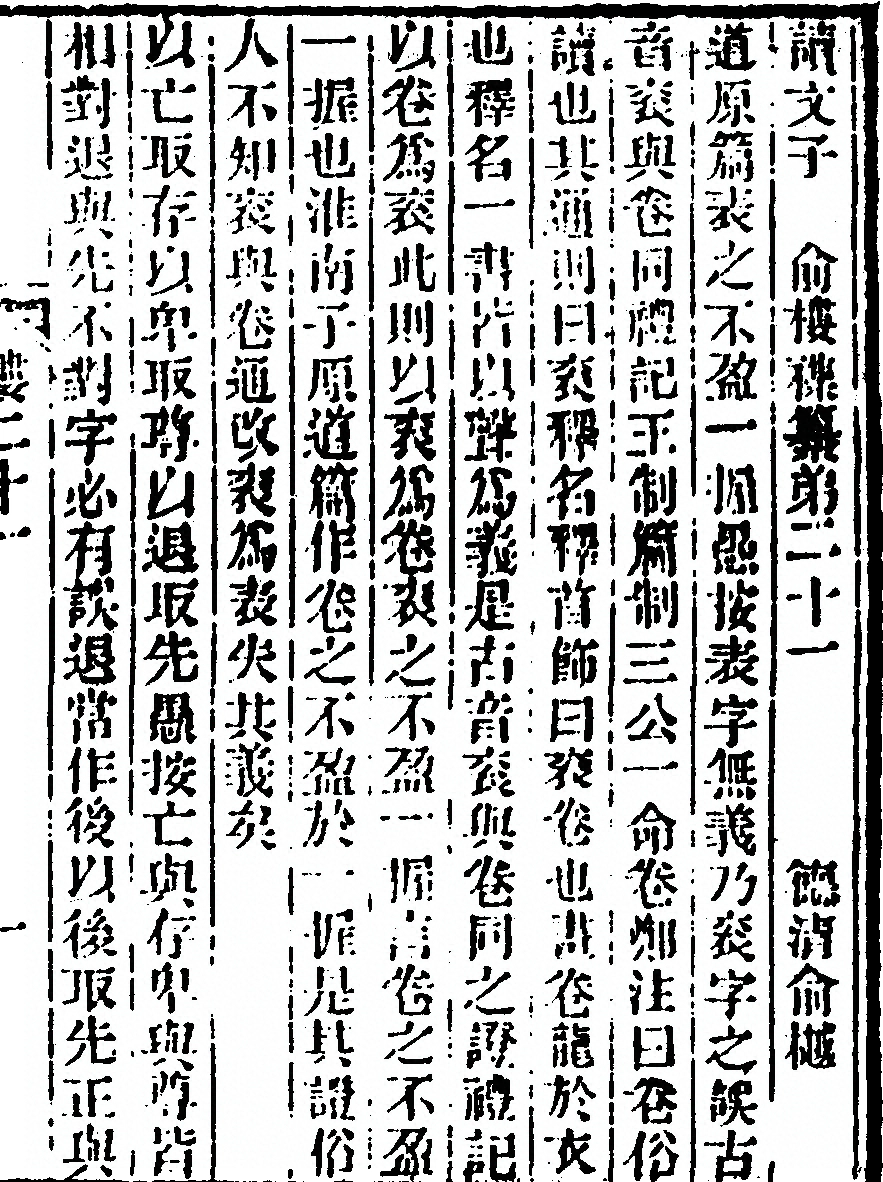 讀文子　俞樓襍纂第二十一　德淸俞樾
道原篇表之不盈一握愚按表字無義乃袠字之誤古
音袠與卷同禮記王制篇制三公一命卷鄭注曰卷俗
讀也其通則曰袞釋名釋首飾曰袞卷也畫卷龍於衣
也釋名一書皆以聲爲義是古音袞與卷同之證禮記
以卷爲袞此則以袞爲卷袞之不盈一握言卷之不盈
一握也淮南子原道篇作卷之不盈於一握是其證俗
人不知袞與卷通改袞爲表失其義矣
以亡取存以卑取尊以退取先愚按亡與存卑與尊皆
相對退與先不對字必有誤退當作後以後取先正與
樓二十一　一